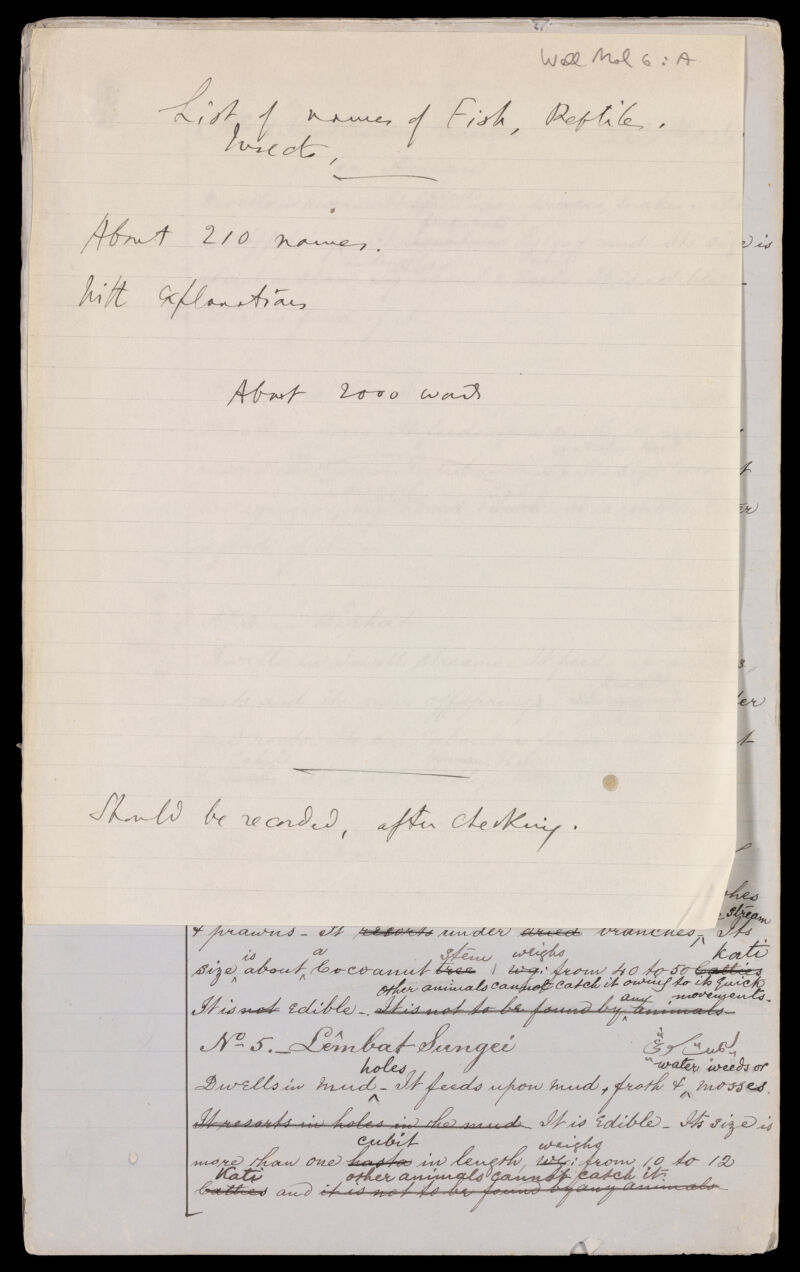 Wall Mal 6 : A
List of names of Fish, Reptiles.
Insects,
About 210 names.
With explanations
About 2000 words
Should be recorded, after checking.
e is
stream
& prawns - It resorts under dried branches, Its
kati
is a stem weighs
size about Cocoanut tree wgi: from 40 to 50 Catties
other animals cannot catch it owing to its quick
any movements.
It is not Edible - It is not to be found by animals
No 5. - Lêmbat Sungei
holes water weeds or
Dwells in mud - It feeds upon mud, froth & mosses.
It resorts in holes in the mud It is Edible - Its size is
cubit weighs
more than one hasta in length, wgi: from 10 to 12
Kati other animals cannot catch it.
Catties and it is not to be found by any animals